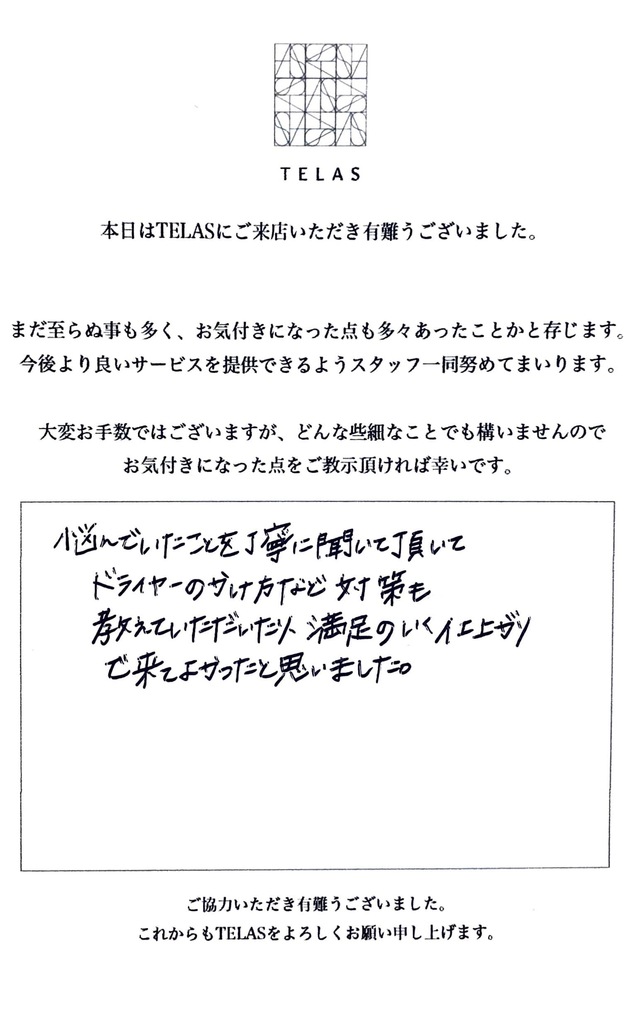 TELAS
本日はTELASにご来店いただき有難うございました。
まだ至らぬ事も多く、お気付きになった点も多々あったことかと存じます。
今後より良いサービスを提供できるようスタッフ一同努めてまいります。
大変お手数ではございますが、どんな些細なことでも構いませんので
お気付きになった点をご教示頂ければ幸いです。
悩んでいたことを丁寧に聞いて頂いて
ドライヤーのかけ方など対策も
教えていただいたり満足のいく仕上がり
で来てよかったと思いました。
ご協力いただき有難うございました。
これからもTELASをよろしくお願い申し上げます。